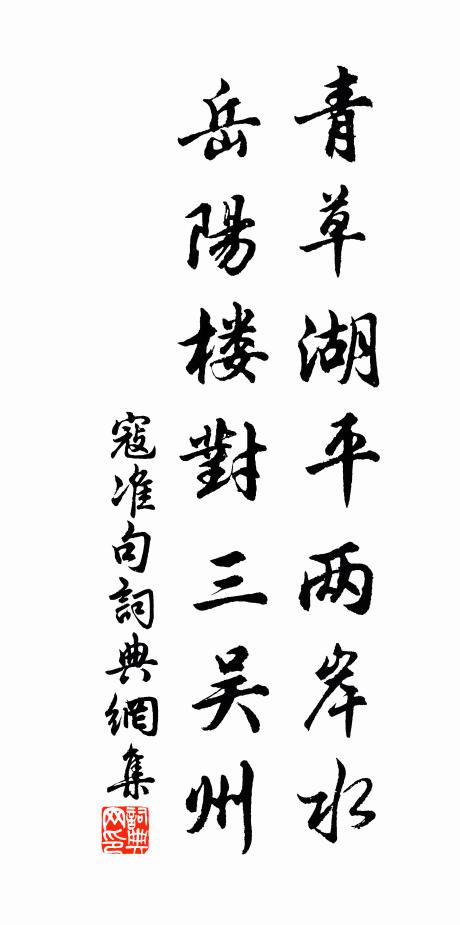 青草湖平两岸水
岳陽楼對三吴州
寇准句詞典網集
詞典网印